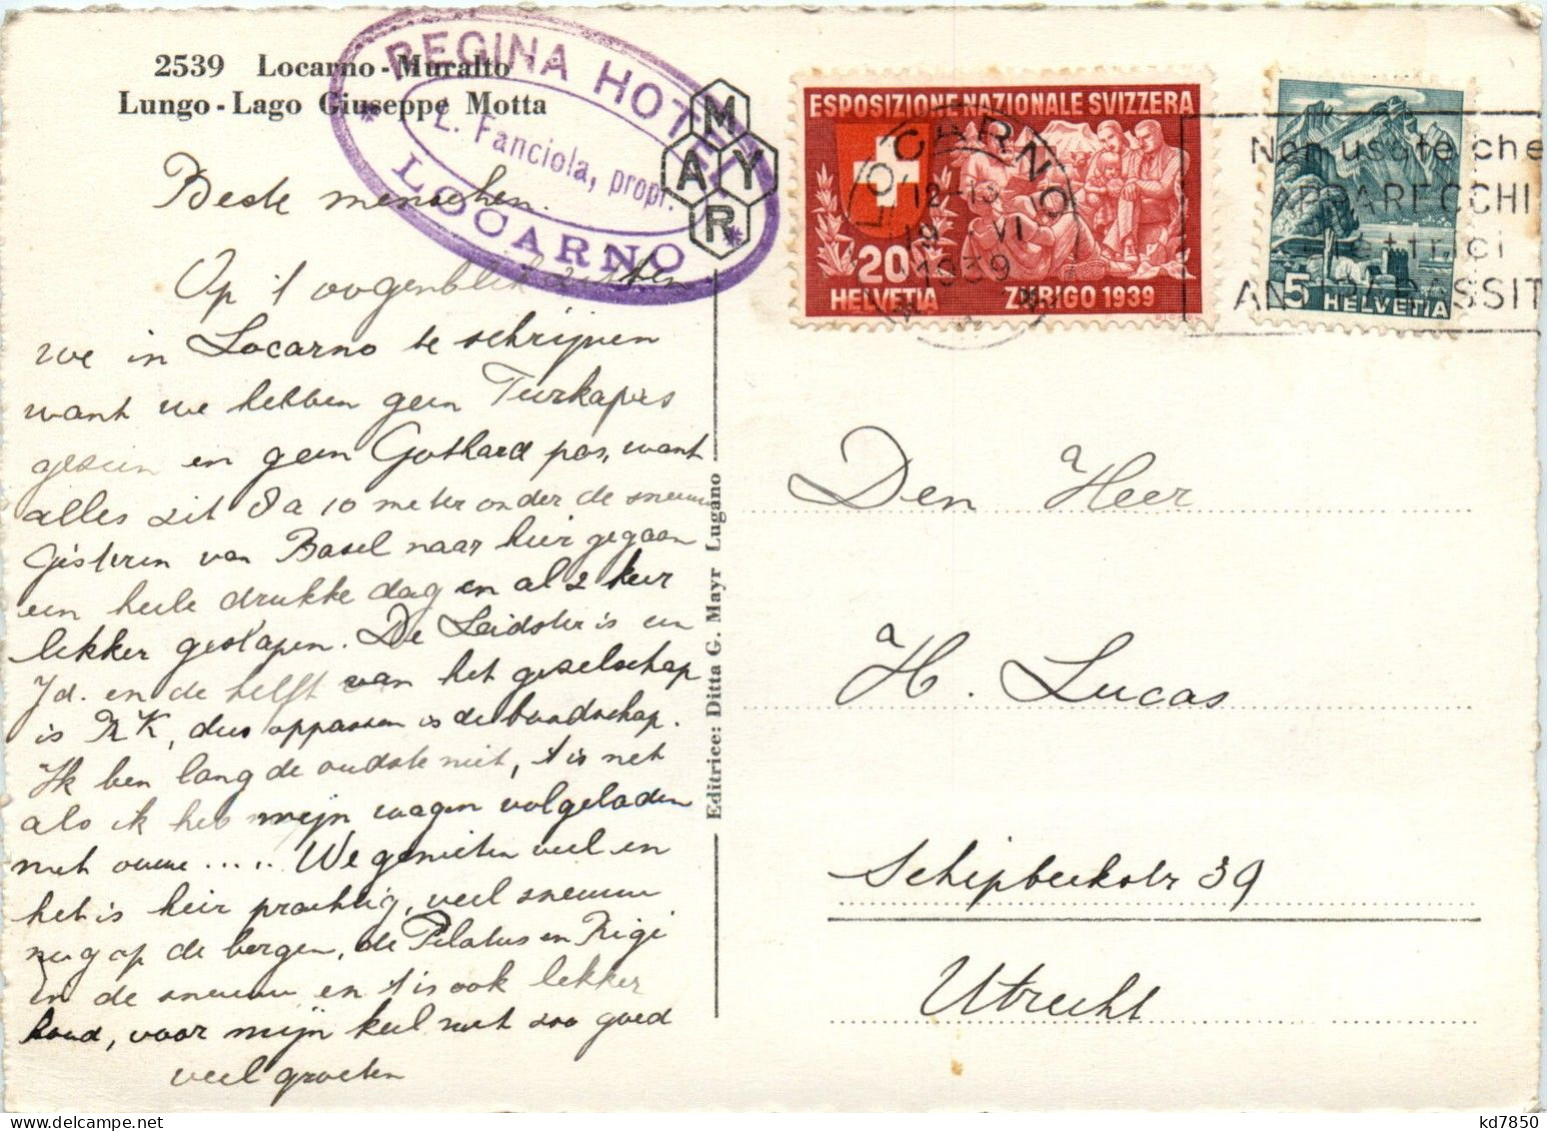 2539 Locarno-Muralto
Lungo-Lago Giuseppe Motta
REGINA HOTEL
L. Fanciola, propr.
LOCARNO
MAYR
Beste menschen.
Op 't oogenblik zitten
we in Locarno te schrijven
want we hebben geen Furkapas
gezien en geen Gothard pas, want
alles zit 8 a 10 meter onder de sneeuw
Gisteren van Basel naar hier gegaan
een heele drukke dag en al 2 keer
lekker geslapen. De Leidster is een
Jd. en de helft van het gezelschap
is R K, dus oppassen is de boodschap.
Ik ben lang de oudste niet, 't is net
als ik heb mijn wagen volgeladen
met ouwe ..... We genieten veel en
het is hier prachtig, veel sneeuw
nog op de bergen, de Pilatus en Rigi
in de sneeuw en 't is ook lekker
koud, voor mijn keel niet zoo goed
veel groeten
Editrice: Ditta G. Mayr Lugano
ESPOSIZIONE NAZIONALE SVIZZERA
20
HELVETIA ZURIGO 1939
LOCARNO
12-13
19 VI
1939
5 HELVETIA
Non usate che
APPARECCHI
elettrici
ANTIPARASSIT
Den Heer
H. Lucas
Schipbeekstr 39
Utrecht
kd7850